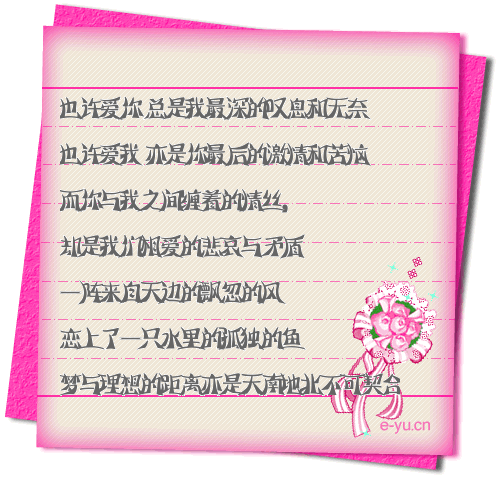 也许爱你 总是我最深的叹息和无奈
也许爱我 亦是你最后的激情和苦恼
而你与我之间缠着的情丝,
却是我们相爱的悲哀与矛盾
一阵来自天边的飘忽的风
恋上了一只水里的孤独的鱼
梦与理想的距离亦是天南地北不可契合
e-yu.cn